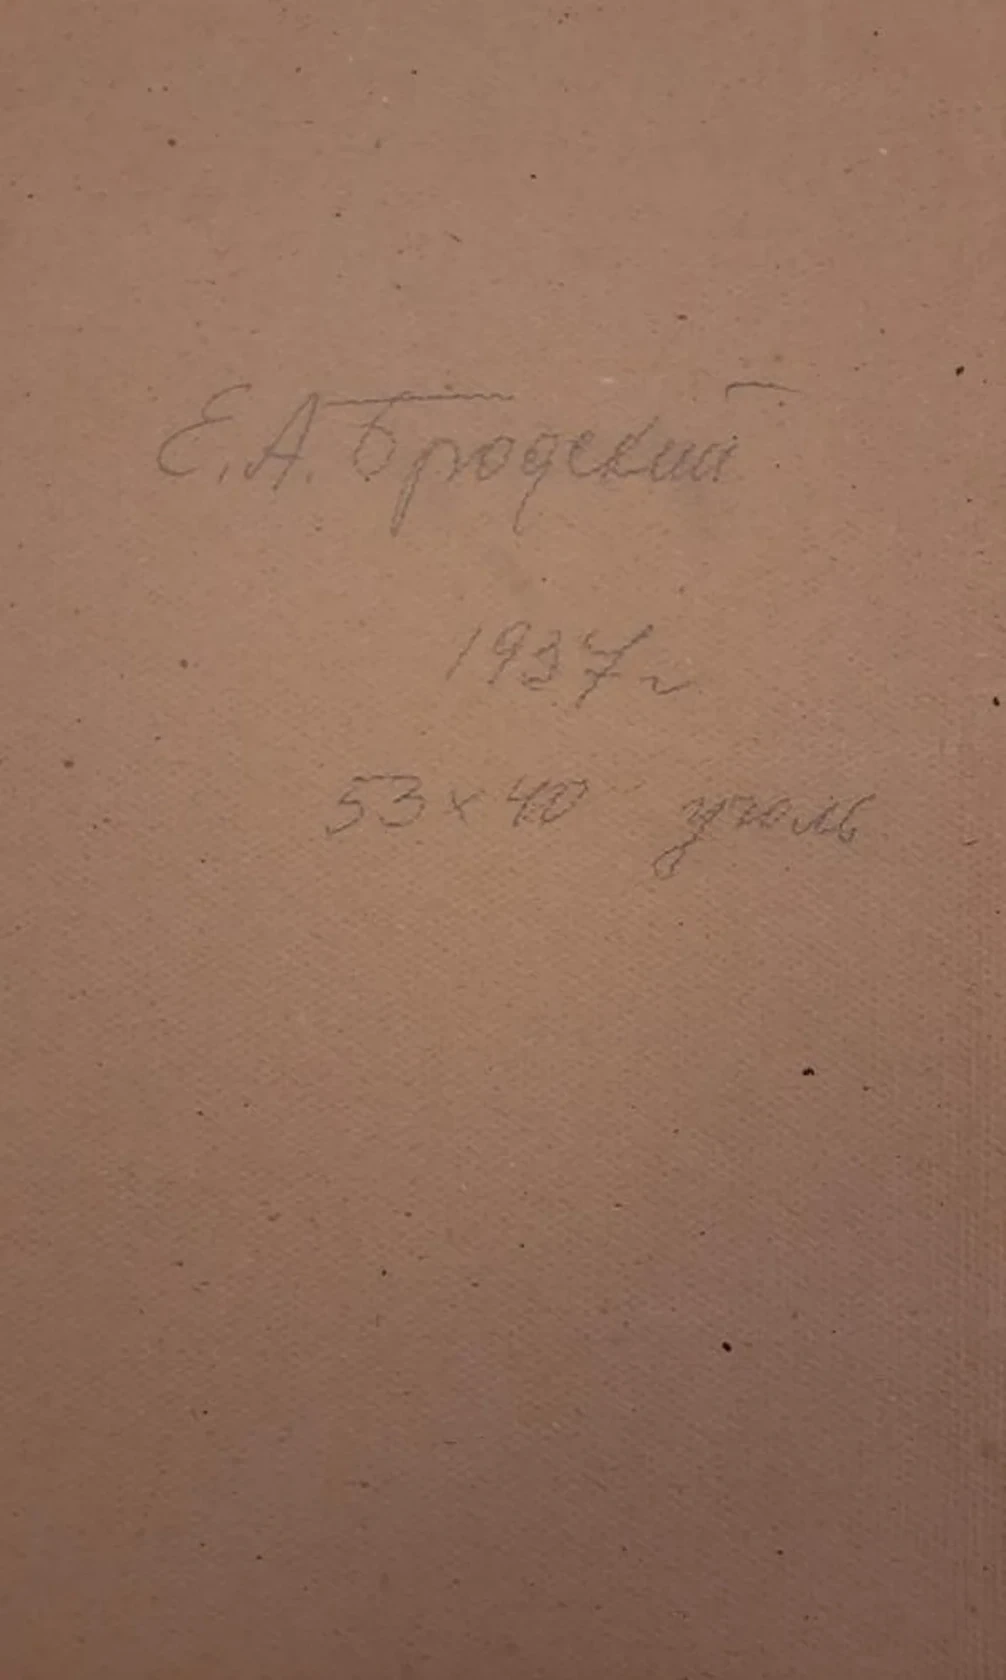 Е.А. Бродский
1937 г
53 х 40 уголь